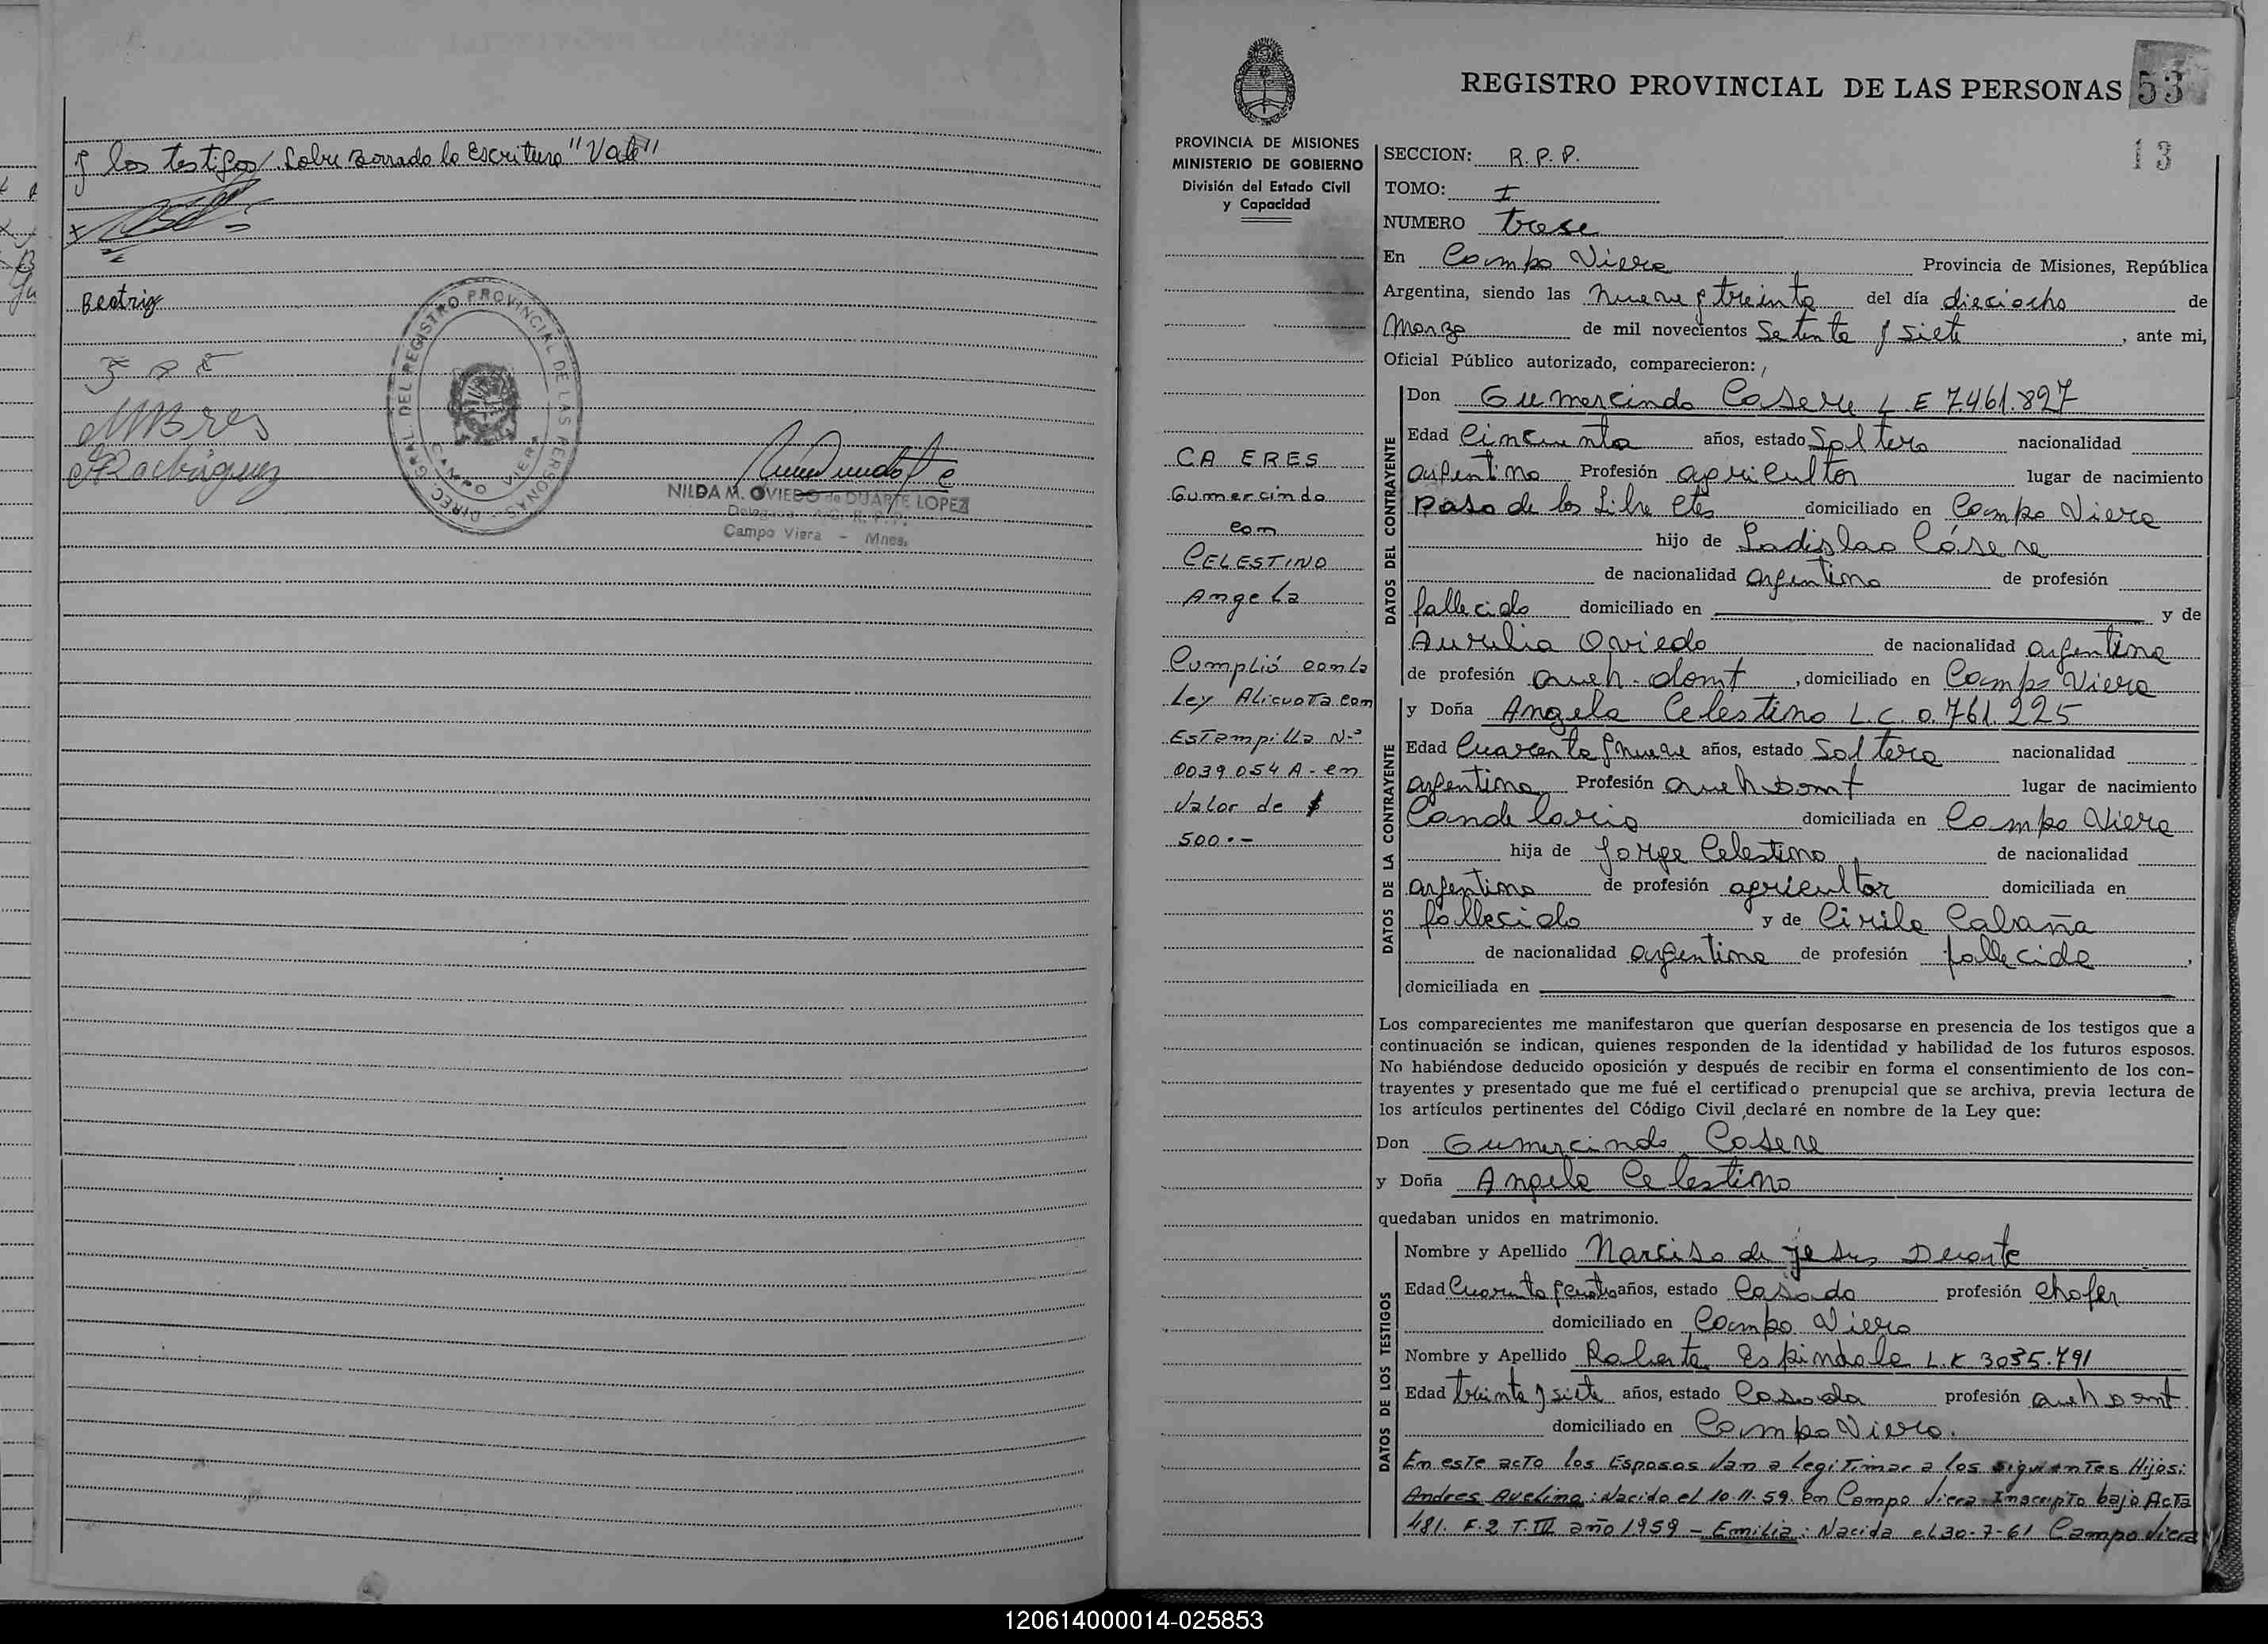 y los testigos/. Sobre Borrado la Escritura "Vale"
Beatriz
DIREC. GRAL. DEL REGISTRO PROVINCIAL DE LAS PERSONAS
CAMPO VIERA
NILDA M. OVIEDO de DUARTE LOPEZ
Delegada R. P. P.
Campo Viera - Mnes.
REGISTRO PROVINCIAL DE LAS PERSONAS 53
13
PROVINCIA DE MISIONES
MINISTERIO DE GOBIERNO
División del Estado Civil
y Capacidad
CA ERES
Gumercindo
con
CELESTINO
Angela
Cumplió con la
Ley Alicuota con
Estampilla N-º
0039054 A- en
Valor de $
500.-
SECCION: R. P. P.
TOMO: I
NUMERO trese
En Campo Viera Provincia de Misiones, República
Argentina, siendo las nueve y treinta del día dieciocho de
Marzo de mil novecientos Setenta y siete, ante mi,
Oficial Público autorizado, comparecieron:
DATOS DEL CONTRAYENTE
Don Gumercindo Casere L E 7461.827
Edad Cincuenta años, estado Soltero nacionalidad
argentino Profesión agricultor lugar de nacimiento
Paso de los Libretes domiciliado en Campo Viera
hijo de Ladislao Cásere
de nacionalidad argentino de profesión
fallecido domiciliado en y de
Aurelia Oviedo de nacionalidad argentina
de profesión queh-domt, domiciliado en Campo Viera
DATOS DE LA CONTRAYENTE
y Doña Angela Celestino L.C. 0.761.225
Edad Cuarenta y nueve años, estado Soltera nacionalidad
argentina Profesión queh domt lugar de nacimiento
Candelaria domiciliada en Campo Viera
hija de Jorge Celestino de nacionalidad
argentino de profesión agricultor domiciliada en
fallecido y de Cirila Cabaña
de nacionalidad argentina de profesión fallecida,
domiciliada en
Los comparecientes me manifestaron que querían desposarse en presencia de los testigos que a
continuación se indican, quienes responden de la identidad y habilidad de los futuros esposos.
No habiéndose deducido oposición y después de recibir en forma el consentimiento de los con-
trayentes y presentado que me fué el certificado prenupcial que se archiva, previa lectura de
los artículos pertinentes del Código Civil, declaré en nombre de la Ley que:
Don Gumercindo Cásere
y Doña Angela Celestino
quedaban unidos en matrimonio.
DATOS DE LOS TESTIGOS
Nombre y Apellido Narciso de jesus Duarte
Edad Cuarenta y cuatro años, estado Casado profesión chofer
domiciliado en Campo Viera
Nombre y Apellido Roberta Espindola L.C 3035.791
Edad treinta y siete años, estado Casada profesión queh domt
domiciliado en Campo Viera.
En este acto los Esposos van a legitimar a los siguientes Hijos:
Andres Avelino: Nacido el 10-11-59. en Campo Viera. Inscripto bajo Acta
481. F.2 T.III año 1959 - Emilia: Nacida el 30-7-61 Campo Viera
120614000014-025853